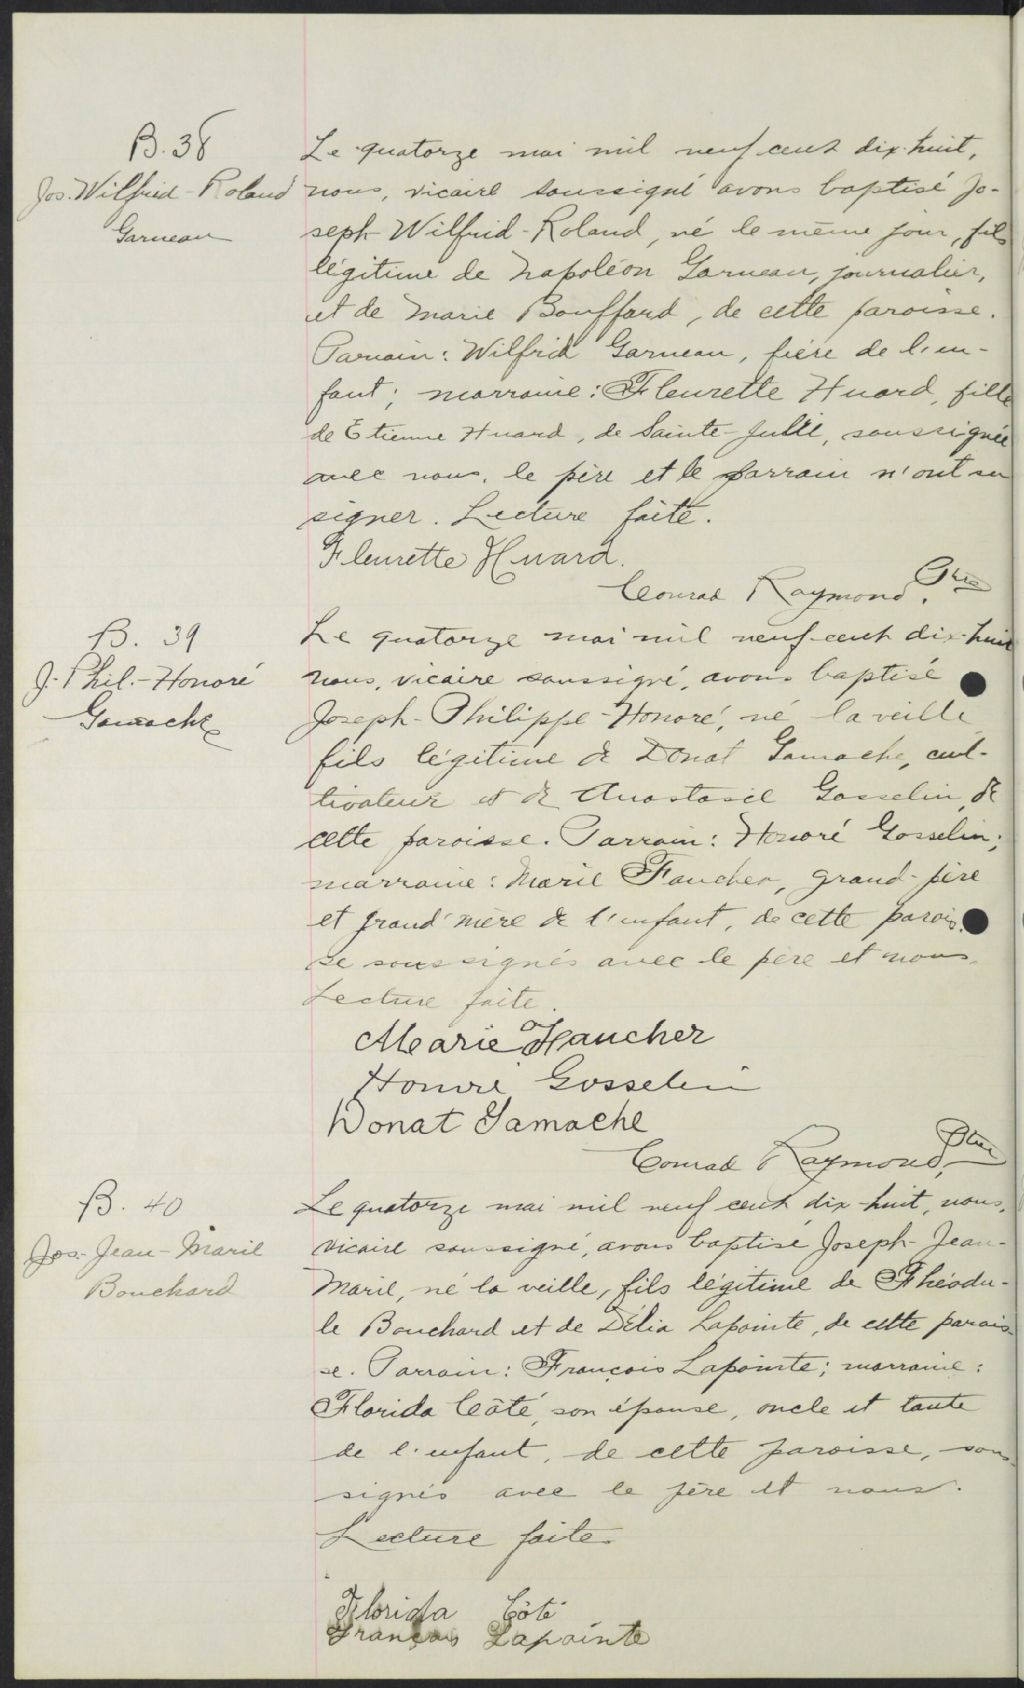 B. 38
Jos. Wilfrid-Roland
Garneau
Le quatorze mai mil neuf cent dix-huit,
nous, vicaire soussigné avons baptisé Jo-
seph-Wilfrid-Roland, né le même jour, fils
légitime de Napoléon Garneau, journalier,
et de Marie Bouffard, de cette paroisse.
Parrain: Wilfrid Garneau, frère de l'en-
fant; marraine: Fleurette Huard, fille
de Etienne Huard, de Sainte-Julie, soussignée
avec nous, le père et le parrain n'ont su
signer. Lecture faite.
Fleurette Huard.
Conrad Raymond, Ptre
B. 39
J.-Phil.-Honoré
Gamache
Le quatorze mai mil neuf-cent dix-huit
nous, vicaire soussigné, avons baptisé
Joseph-Philippe-Honoré, né la veille
fils légitime de Donat Gamache, cul-
tivateur et de Anastasie Gosselin, de
cette paroisse. Parrain: Honoré Gosselin;
marraine: Marie Faucher, grand-père
et grand'mère de l'enfant, de cette parois-
se soussignés avec le père et nous.
Lecture faite.
Marie Faucher
Honoré Gosselin
Donat Gamache
Conrad Raymond, Ptre
B. 40
Jos.-Jean-Marie
Bouchard
Le quatorze mai mil neuf cent dix-huit, nous,
vicaire soussigné, avons baptisé Joseph-Jean-
Marie, né la veille, fils légitime de Théodu-
le Bouchard et de Délia Lapointe, de cette parois-
se. Parrain: François Lapointe; marraine:
Florida Côté, son épouse, oncle et tante
de l'enfant, de cette paroisse, sous-
signés avec le père et nous.
Lecture faite.
Florida Côté
François Lapointe